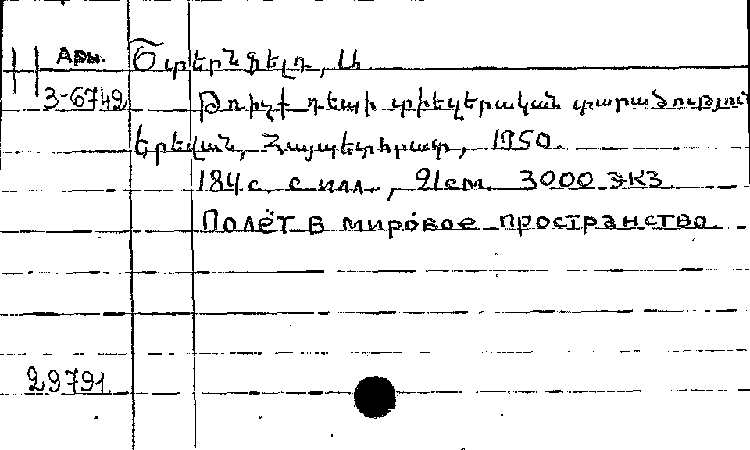 Арм. Շտերնֆելդ, Ա
3-6742 Թռիչք դեպի տիեզերական տարածություն
Երեվան, Հայպետհրատ, 1950.
184 с. с илл., 21 см. 3000 экз
Полёт в мировое пространство.
29791